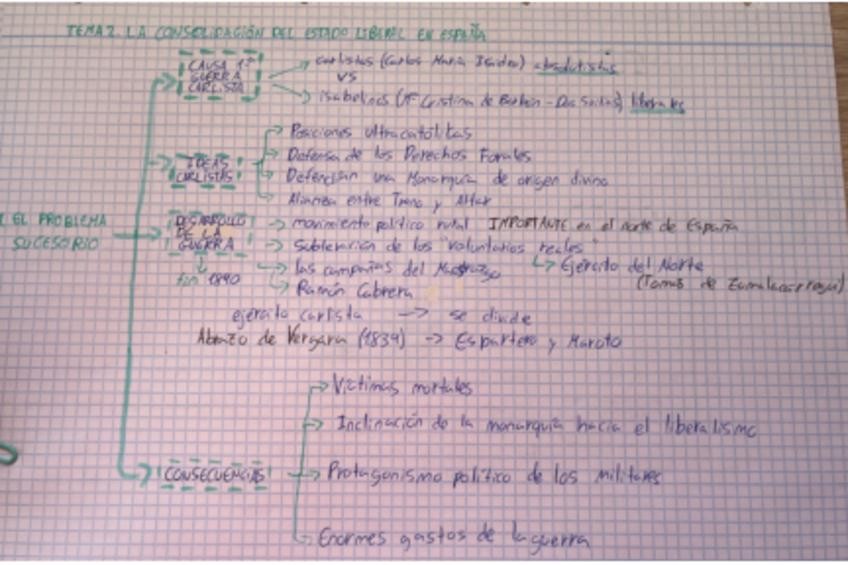 TEMA 2. LA CONSOLIDACIÓN DEL ESTADO LIBERAL EN ESPAÑA
1. EL PROBLEMA
SUCESORIO
CAUSA 1ª
GUERRA
CARLISTA
carlistas (Carlos María Isidro) absolutistas
VS
isabelinos (Mª Cristina de Borbón - Dos Sicilias) liberales
IDEAS
CARLISTAS
Posiciones ultracatólicas
Defensa de los Derechos Forales
Defendían una Monarquía de origen divino
Alianza entre Trono y Altar
DESARROLLO
DE LA
GUERRA
fin 1840
movimiento político rural IMPORTANTE en el norte de España
Sublevación de los "voluntarios reales"
Ejército del Norte
(Tomás de Zumalacárregui)
las campañas del Maestrazgo
Ramón Cabrera
ejército carlista → se divide
Abrazo de Vergara (1839) → Espartero y Maroto
CONSECUENCIAS
Víctimas mortales
Inclinación de la monarquía hacia el liberalismo
Protagonismo político de los militares
Enormes gastos de la guerra